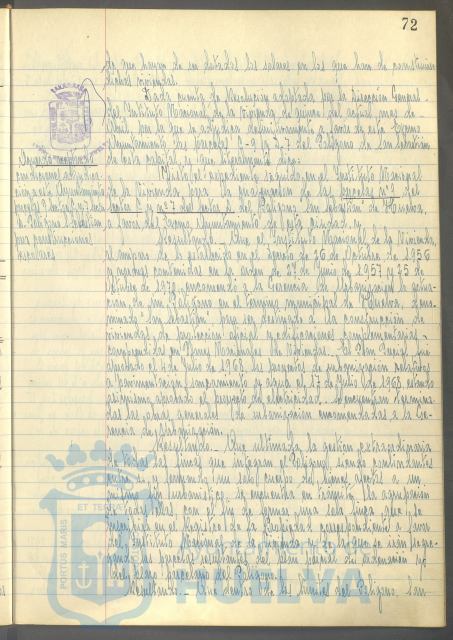 72
de que hayan de ser dotados los solares en los que han de construirse
dichas viviendas.
Dada cuenta de Resolución adoptada por la Dirección General
del Instituto Nacional de la Vivienda de quince del actual mes de
Abril, por la que se adjudica definitivamente a favor de este Excmo.
Ayuntamiento las parcelas C-9 y S-7 del Polígono de San Sebastián
de esta capital, y que literalmente dice:
Visto el expediente seguido en el Instituto Nacional
de la Vivienda para la adjudicación de las parcelas nº 9 del
sector C y nº 7 del sector S, del Polígono "San Sebastián" de Huelva,
a favor del Excmo. Ayuntamiento de esta ciudad, y
Resultando.- Que el Instituto Nacional de la Vivienda,
al amparo de lo establecido en el Decreto de 26 de Octubre de 1956
y normas contenidas en la orden de 27 de Junio de 1957 y 25 de
Octubre de 1970, encomendó a la Gerencia de Urbanización la actua-
ción de un Polígono en el término municipal de Huelva, deno-
minado "San Sebastián" para ser destinado a la construcción de
viviendas de protección oficial y edificaciones complementarias
comprendidas en Planes Nacionales de Viviendas. El Plan Parcial fue
aprobado el 4 de Julio de 1963, los proyectos de urbanización relativos
a pavimentación, saneamiento y agua el 17 de Julio de 1968, estando
asimismo aprobado el proyecto de electricidad, y encuentran termina-
das las obras generales de urbanización encomendadas a la Ge-
rencia de Urbanización.
Resultando.- Que ultimada la gestión expropiatoria
de todas las fincas que integran el Polígono, siendo colindantes
entre sí y formando un solo cuerpo de bienes afectos a un
mismo fin urbanístico, se encuentra en trámite la agrupación
de todas ellas, con el fin de formar una sola finca que se
inscribirá en el Registro de la Propiedad correspondiente a favor
del Instituto Nacional de la Vivienda, de la que se irán segre-
gando las parcelas resultantes del plan parcial de ordenación y
del plano parcelario del Polígono.
Resultando.- Que dentro de los límites del Polígono San
Acuerdo
con
a este Ayuntamiento
para construcciones
escolares
PORTUS MARIS
ET TERRAE
AYUNTAMIENTO DE
HUELVA